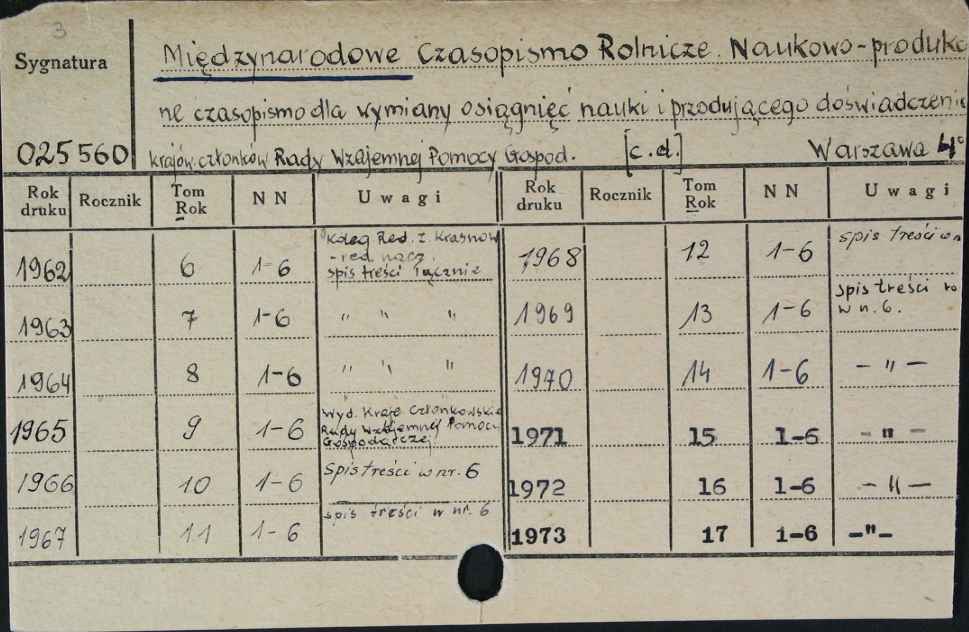 3
Sygnatura
Międzynarodowe Czasopismo Rolnicze. Naukowo-produkc
ne czasopismo dla wymiany osiągnięć nauki i przodującego doświadczenia
025560 krajów członków Rady Wzajemnej Pomocy Gospod. [c.d.] Warszawa 4°
Rok druku Rocznik Tom Rok N N Uwagi Rok druku Rocznik Tom Rok N N Uwagi
1962 6 1-6 Koleg Red. z. Krasnow - red nacz. spis treści łącznie 1968 12 1-6 spis treści w n
1963 7 1-6 " " " 1969 13 1-6 spis treści ro w n. 6.
1964 8 1-6 " " " 1970 14 1-6 - " -
1965 9 1-6 Wyd. Kraje Członkowskie Rady Wzajemnej Pomocy Gospodarczej 1971 15 1-6 - " -
1966 10 1-6 Spis treści w nr. 6 1972 16 1-6 - " -
1967 11 1-6 spis treści w nr. 6 1973 17 1-6 -"-